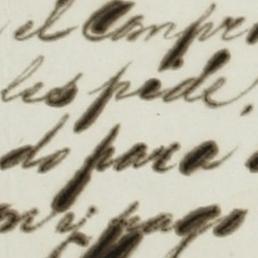 el Compr
les pide,
do para
y pago